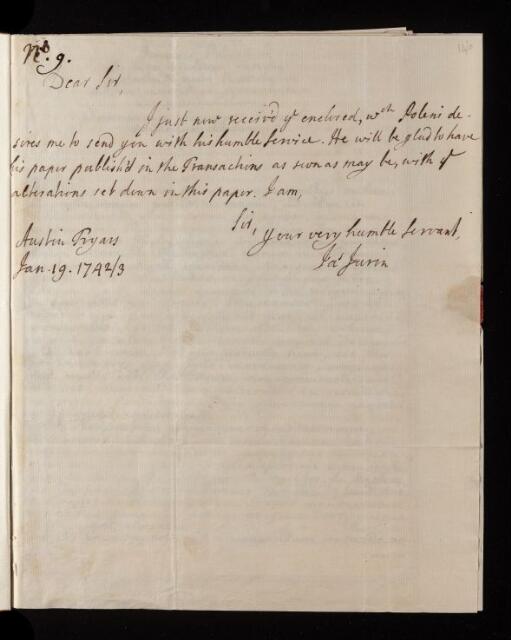 No. 9.
140
Dear Sir,
I just now receiv'd ye enclosed, wch Poleni de-
sires me to send you with his humble Service. He will be glad to have
his paper publish'd in the Transactions as soon as may be, with ye
alterations set down in this paper. I am,
Sir,
your very humble Servant,
Austin Fryars
Jan. 19. 1742/3
Jas Jurin